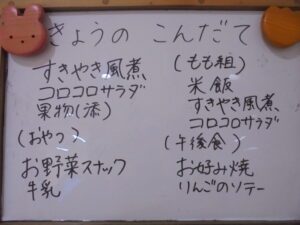 きょうの こんだて
すきやき風煮
コロコロサラダ
果物(添)
(おやつ)
お野菜スナック
牛乳
(もも組)
米飯
すきやき風煮
コロコロサラダ
(午後食)
お好み焼
りんごのソテー